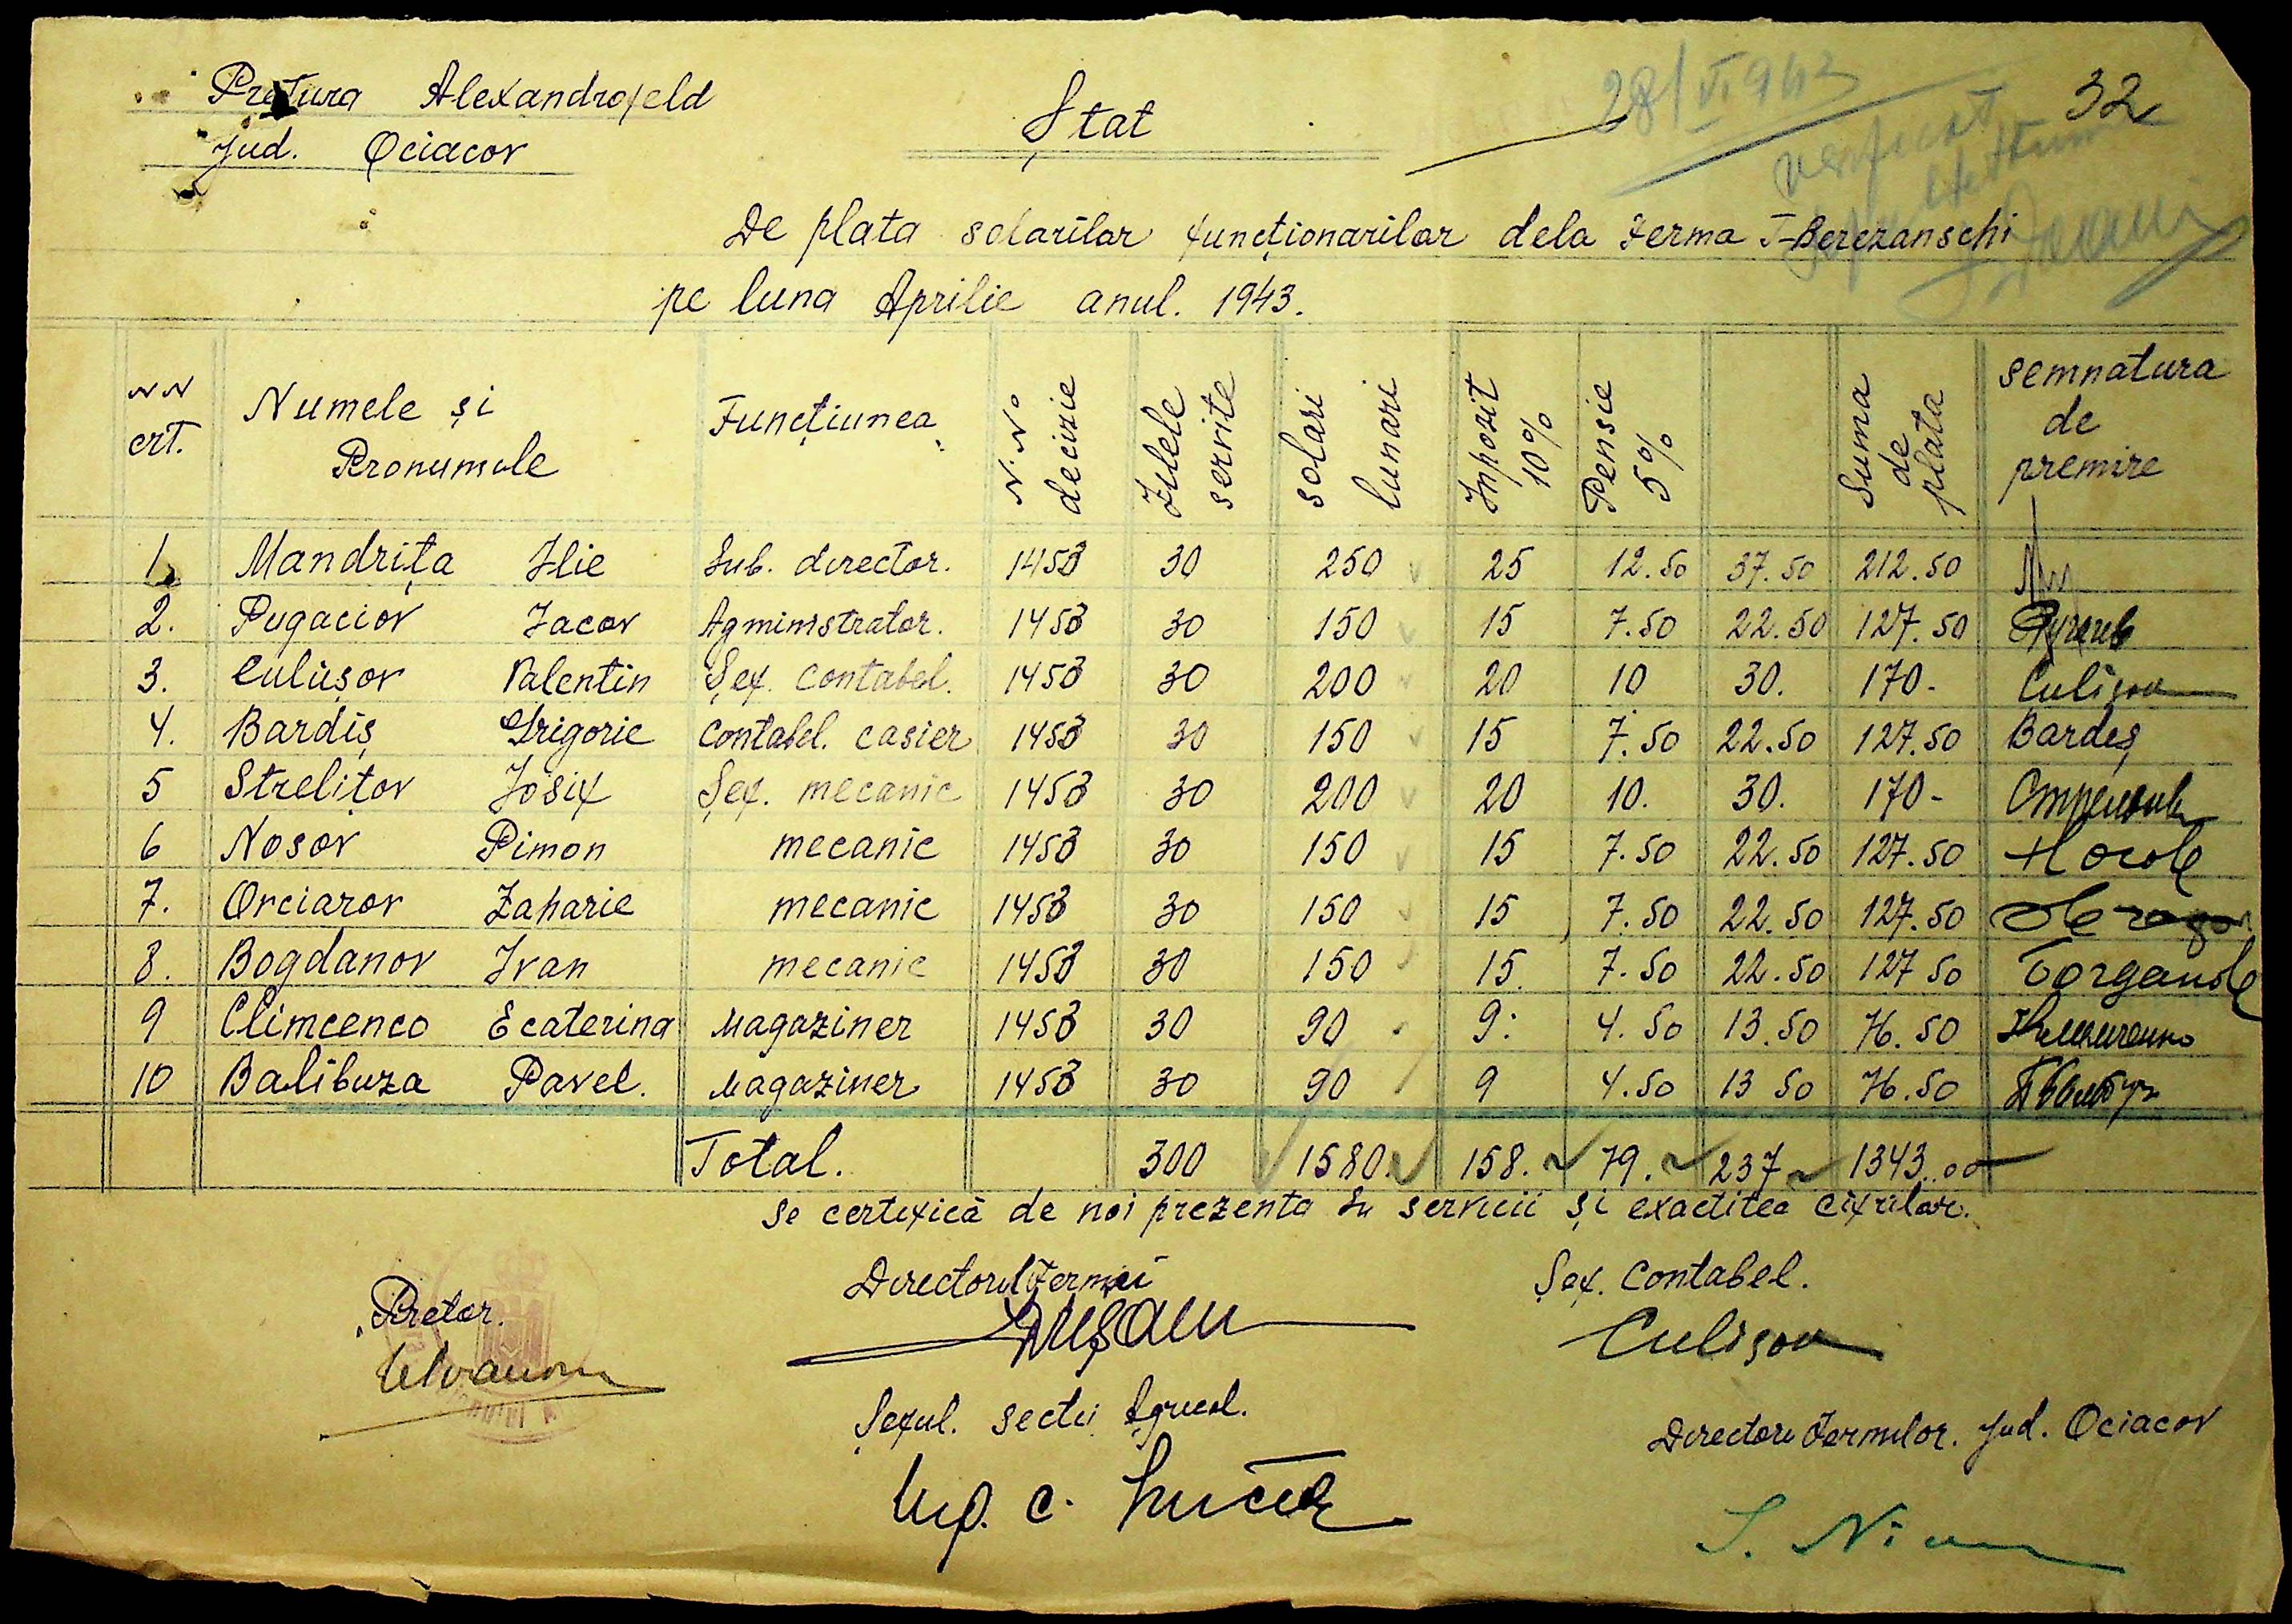 Pretura Alexandrofeld
Jud. Ociacov
Ștat
28/VI 943
32
verificat
De plata solarilor funcționarilor dela Ferma T-Berezanschi
pe luna Aprilie anul. 1943.
NN crt. Numele și Pronumele Funcțiunea N.No decizie Zilele servite solari lunari Inpozit 10% Pensie 5% Suma de plata semnatura de premire
1. Mandrița Ilie Sub. director. 1453 30 250 25 12.50 37.50 212.50
2. Pugaciov Iacov Agministrator. 1453 30 150 15 7.50 22.50 127.50
3. Culișov Valentin Șef. contabel. 1453 30 200 20 10 30. 170- Culișov
4. Bardiș Grigorie contabel. casier 1453 30 150 15 7.50 22.50 127.50 Bardeș
5 Strelițov Josif Șef. mecanic 1453 30 200 20 10. 30. 170-
6 Nosov Pimon mecanic 1453 30 150 15 7.50 22.50 127.50 Носов
7. Ovciarov Zaharie mecanic 1453 30 150 15 7.50 22.50 127.50
8. Bogdanov Ivan mecanic 1453 30 150 15. 7.50 22.50 127 50
9 Climcenco Ecaterina Magaziner 1453 30 90 9. 4.50 13.50 76.50
10 Balibuza Pavel. Magaziner 1453 30 90 9 4.50 13 50 76.50
Total. 300 1580. 158. 79. 237 1343.00
Se certifică de noi prezenta în servicii și exactitea cifrilor.
Directorul Fermei
Șef. Contabel.
Pretor.
Culișov
Șeful. secții Agricol.
Directoru Fermilor. Jud. Ociacov
Ing. C.